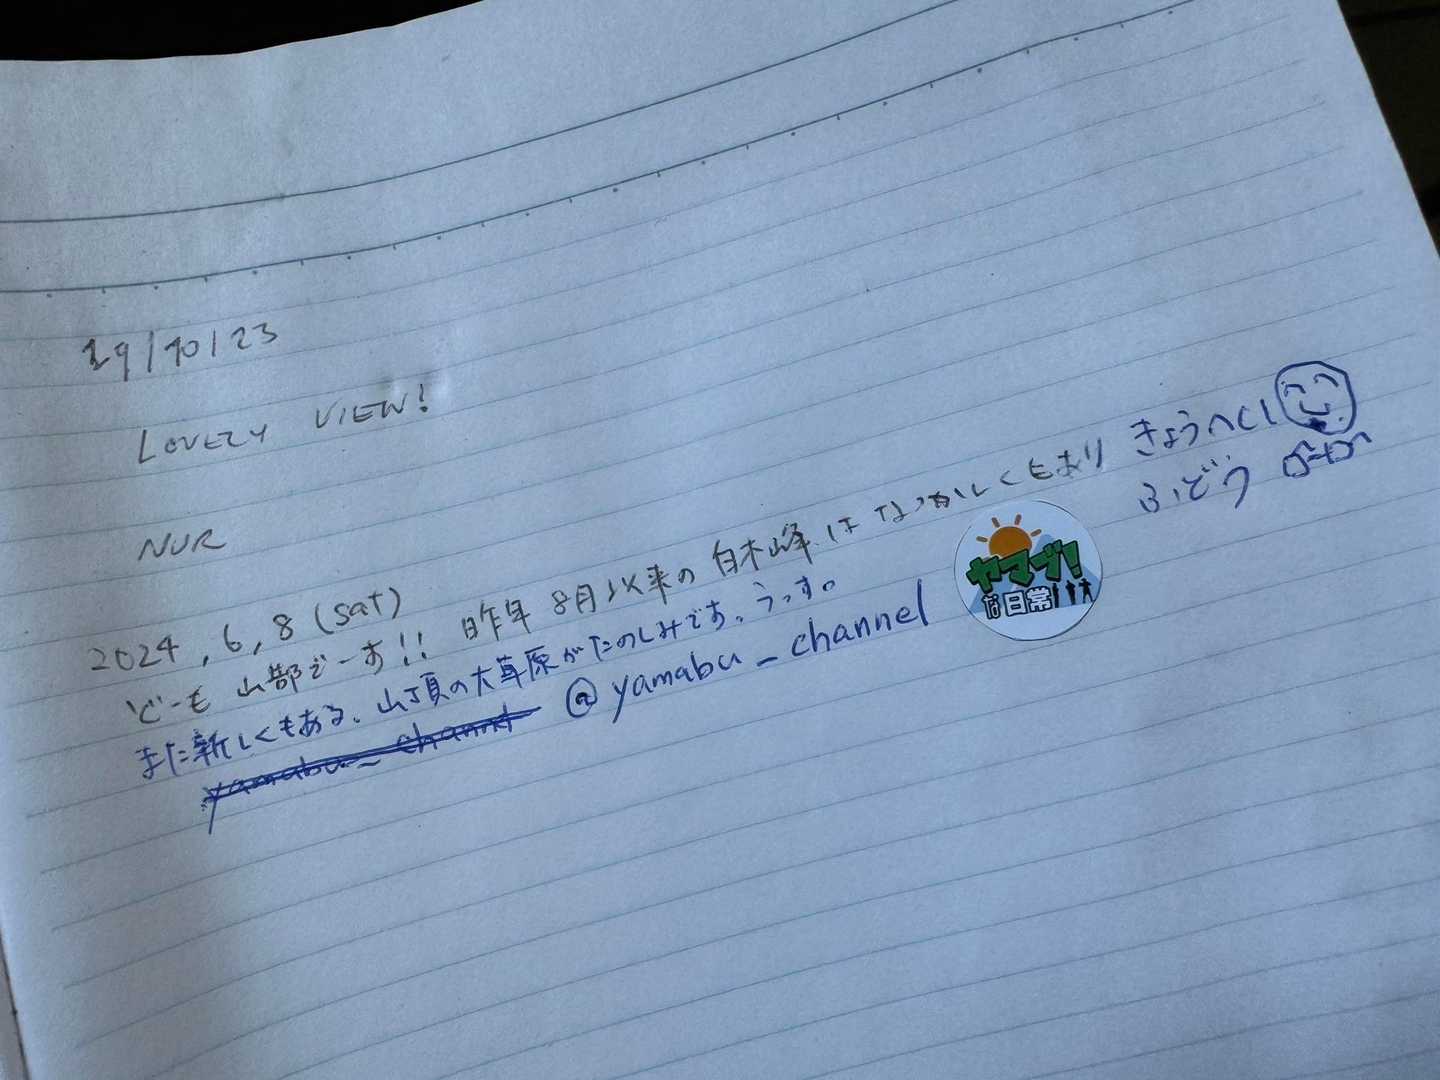 19/10/23
LOVELY VIEW!
NUR
2024,6,8(sat)
どーも 山部でーす!! 昨年 8月以来の 白木峰は なつかしくもあり
また新しくもある、山頂の大草原がたのしみです、うっす。
yamabu_channel @yamabu_channel
ヤマブ!
な日常
きょうへい
ふどう